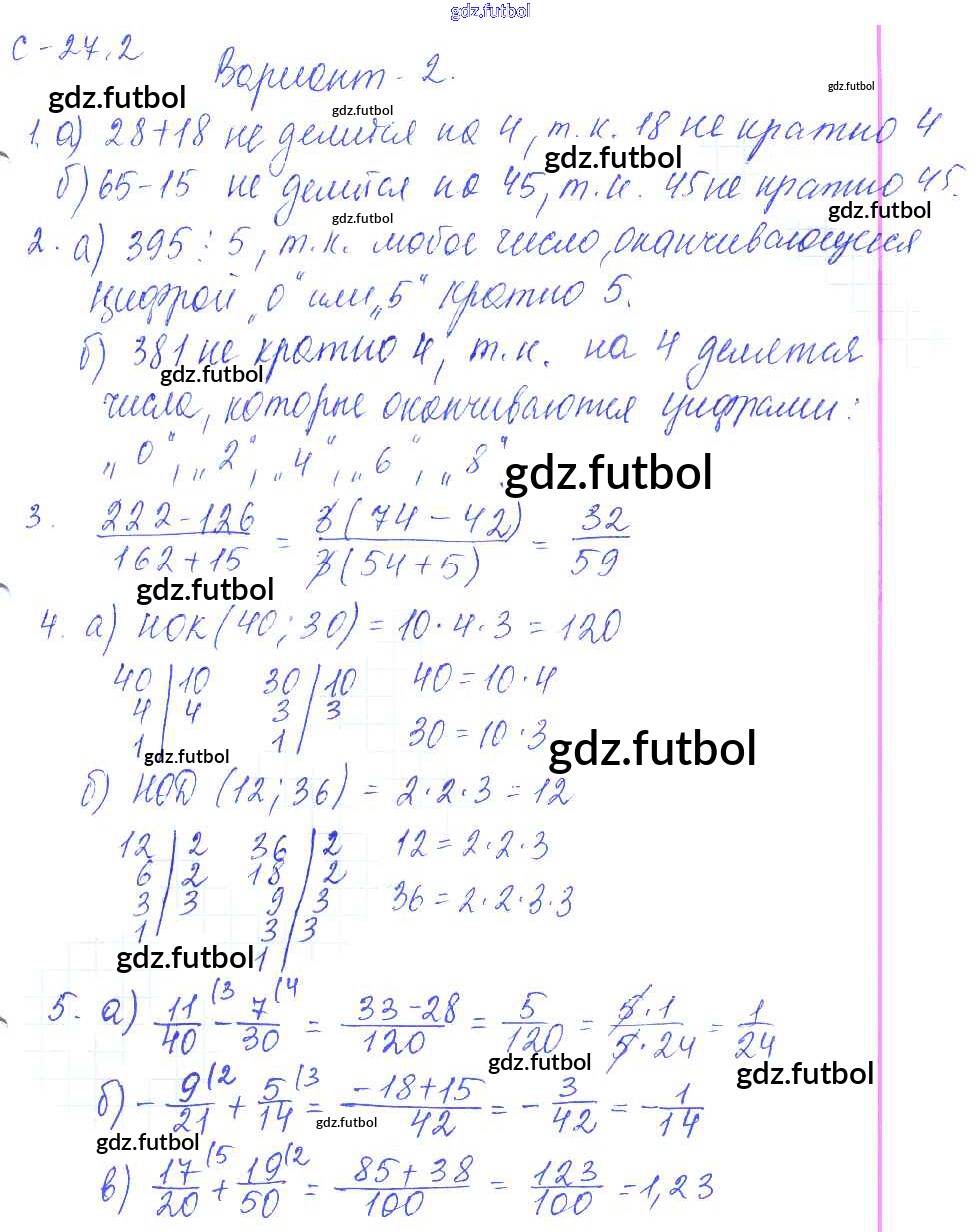 gdz.futbol
С-27.2
Вариант-2.
gdz.futbol
gdz.futbol
gdz.futbol
1. а) 28+18 не делится на 4, т.к. 18 не кратно 4
gdz.futbol
б) 65-15 не делится на 45, т.к. 45 не кратно 45.
gdz.futbol
gdz.futbol
2. а) 395 : 5, т.к. любое число, оканчивающееся
цифрой „0“ или „5“ кратно 5.
б) 381 не кратно 4, т.к. на 4 делятся
gdz.futbol
числа, которые оканчиваются цифрами:
„0“, „2“, „4“, „6“, „8“.
gdz.futbol
3. (222-126)/(162+15) = 3(74-42)/3(54+5) = 32/59
gdz.futbol
4. а) НОК (40; 30) = 10·4·3 = 120
40|10 30|10 40=10·4
4|4 3|3
1| 1| 30=10·3
gdz.futbol
gdz.futbol
б) НОД (12; 36) = 2·2·3 = 12
12|2 36|2 12=2·2·3
6|2 18|2
3|3 9|3 36=2·2·3·3
1| 3|3
1|
gdz.futbol
5. а) 11/40 (3 - 7/30 (4 = (33-28)/120 = 5/120 = 5·1/5·24 = 1/24
gdz.futbol
gdz.futbol
б) -9/21 (2 + 5/14 (3 = (-18+15)/42 = -3/42 = -1/14
gdz.futbol
gdz.futbol
в) 17/20 (5 + 19/50 (2 = (85+38)/100 = 123/100 = 1,23